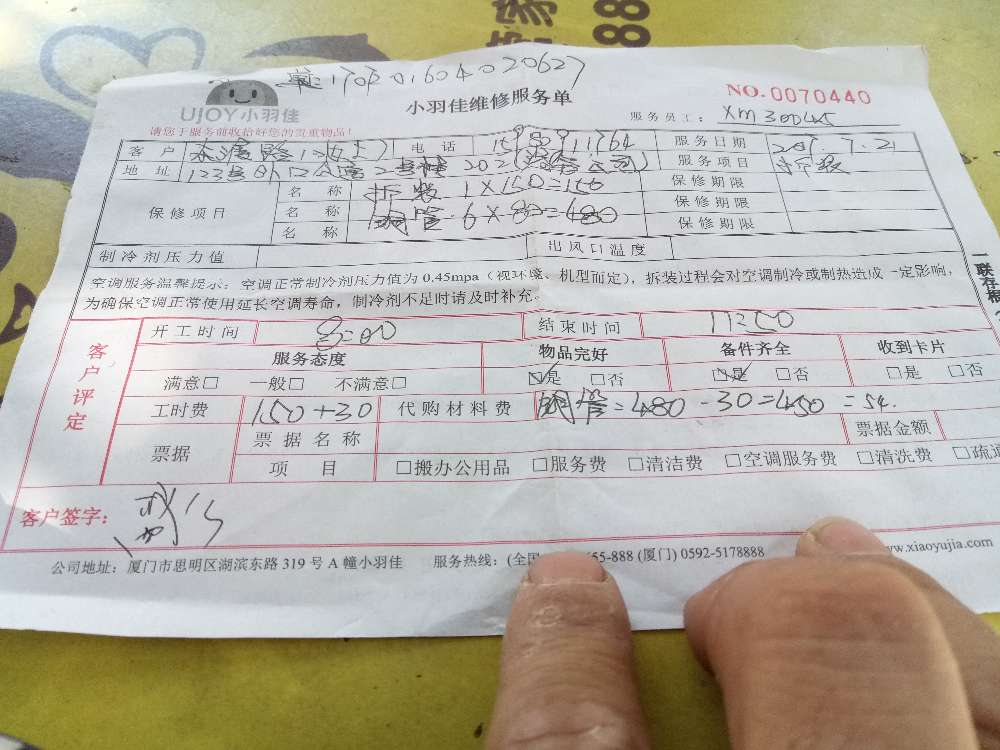 170301604020627
UJOY小羽佳
小羽佳维修服务单
NO.0070440
请您于服务前收拾好您的贵重物品!
服务员工: XM300445
客 户 电 话 服务日期 7.21
地 址 服务项目 拆装
保修项目 名 称 拆装 1X150=150 保修期限
名 称 铜管.6X80=480 保修期限
名 称 保修期限
制冷剂压力值 出风口温度
空调服务温馨提示:空调正常制冷剂压力值为0.45mpa(视环境、机型而定),拆装过程会对空调制冷或制热造成一定影响,
为确保空调正常使用延长空调寿命,制冷剂不足时请及时补充。
一联存根
客户评定
开工时间 8:00 结束时间
服务态度 物品完好 备件齐全 收到卡片
满意□ 一般□ 不满意□ ☑是 □否 ☑是 □否 □是 □否
工时费 150+30 代购材料费 铜管=480-30=450=54.
票据 票据名称 票据金额
项 目 □搬办公用品 □服务费 □清洁费 □空调服务费 □清洗费 □疏通
客户签字:
公司地址:厦门市思明区湖滨东路319号A幢小羽佳 服务热线:(全国 55-888 (厦门) 0592-5178888 www.xiaoyujia.com
888